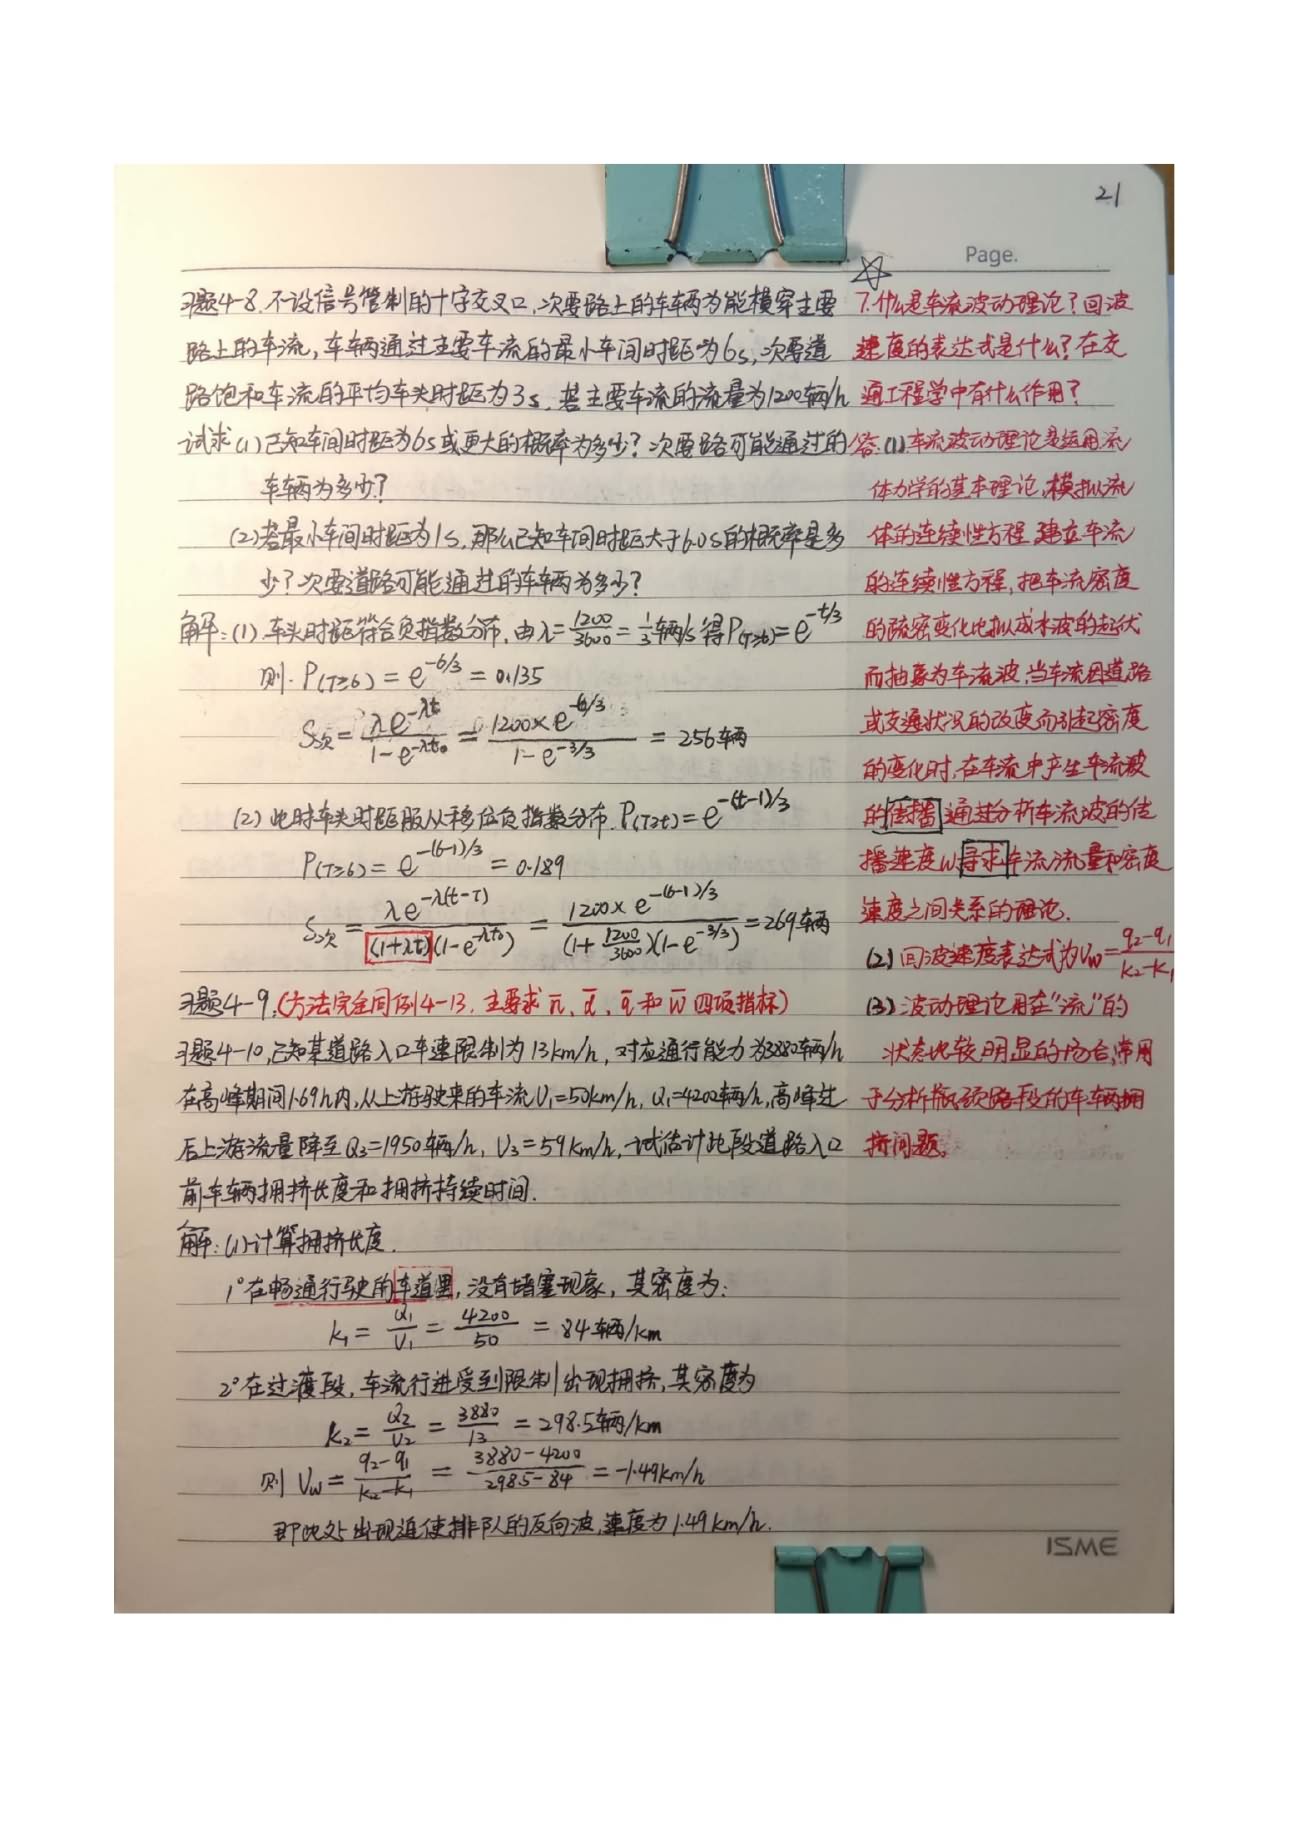 21
Page.
习题4-8.不设信号管制的十字交叉口,次要路上的车辆为能横穿主要
路上的车流,车辆通过主要车流的最小车间时距为6s,次要道
路饱和车流的平均车头时距为3s,若主要车流的流量为1200辆/h
试求(1)已知车间时距为6s或更大的概率为多少?次要路可能通过的
车辆为多少?
(2)若最小车间时距为1s,那么已知车间时距大于6.0s的概率是多
少?次要道路可能通过的车辆为多少?
解:(1)车头时距符合负指数分布,由λ=1200/3600=1/3辆/s得P(T≥6)=e^{-t/3}
则.P(T≥6)=e^{-6/3}=0.135
S次=λe^{-λt}/(1-e^{-λt₀})=1200×e^{-6/3}/(1-e^{-3/3})=256辆
(2)此时车头时距服从移位负指数分布.P(T≥t)=e^{-(t-1)/3}
P(T≥6)=e^{-(6-1)/3}=0.189
S次=λe^{-λ(t-τ)}/((1+λτ)(1-e^{-λt₀}))=1200×e^{-(6-1)/3}/((1+1200/3600)(1-e^{-3/3}))=269辆
习题4-9.(方法完全同例4-13,主要求n̄、d̄、q̄和w̄四项指标)
习题4-10,已知某道路入口车速限制为13km/h,对应通行能力为3880辆/h
在高峰期间1.69h内,从上游驶来的车流V₁=50km/h,Q₁=4200辆/h,高峰过
后上游流量降至Q₃=1950辆/h,V₃=59km/h,试估计此段道路入口
前车辆拥挤长度和拥挤持续时间.
解:(1)计算拥挤长度.
1°在畅通行驶的车道里,没有堵塞现象,其密度为:
k₁=Q₁/V₁=4200/50=84辆/km
2°在过渡段,车流行进受到限制出现拥挤,其密度为
k₂=Q₂/V₂=3880/13=298.5辆/km
则Vw=(q₂-q₁)/(k₂-k₁)=(3880-4200)/(298.5-84)=-1.49km/h
即此处出现迫使排队的反向波,速度为1.49km/h.
7.什么是车流波动理论?回波
速度的表达式是什么?在交
通工程学中有什么作用?
答:(1)车流波动理论是运用流
体力学的基本理论,模拟流
体的连续性方程,建立车流
的连续性方程,把车流密度
的疏密变化比拟成水波的起伏
而抽象为车流波,当车流因道路
或交通状况的改变而引起密度
的变化时,在车流中产生车流波
的传播,通过分析车流波的传
播速度w,寻求车流流量和密度
速度之间关系的理论.
(2)回波速度表达式为Vw=(q₂-q₁)/(k₂-k₁)
(3)波动理论用在"流"的
状态比较明显的场合,常用
于分析瓶颈路段的车辆拥
挤问题。
ISME